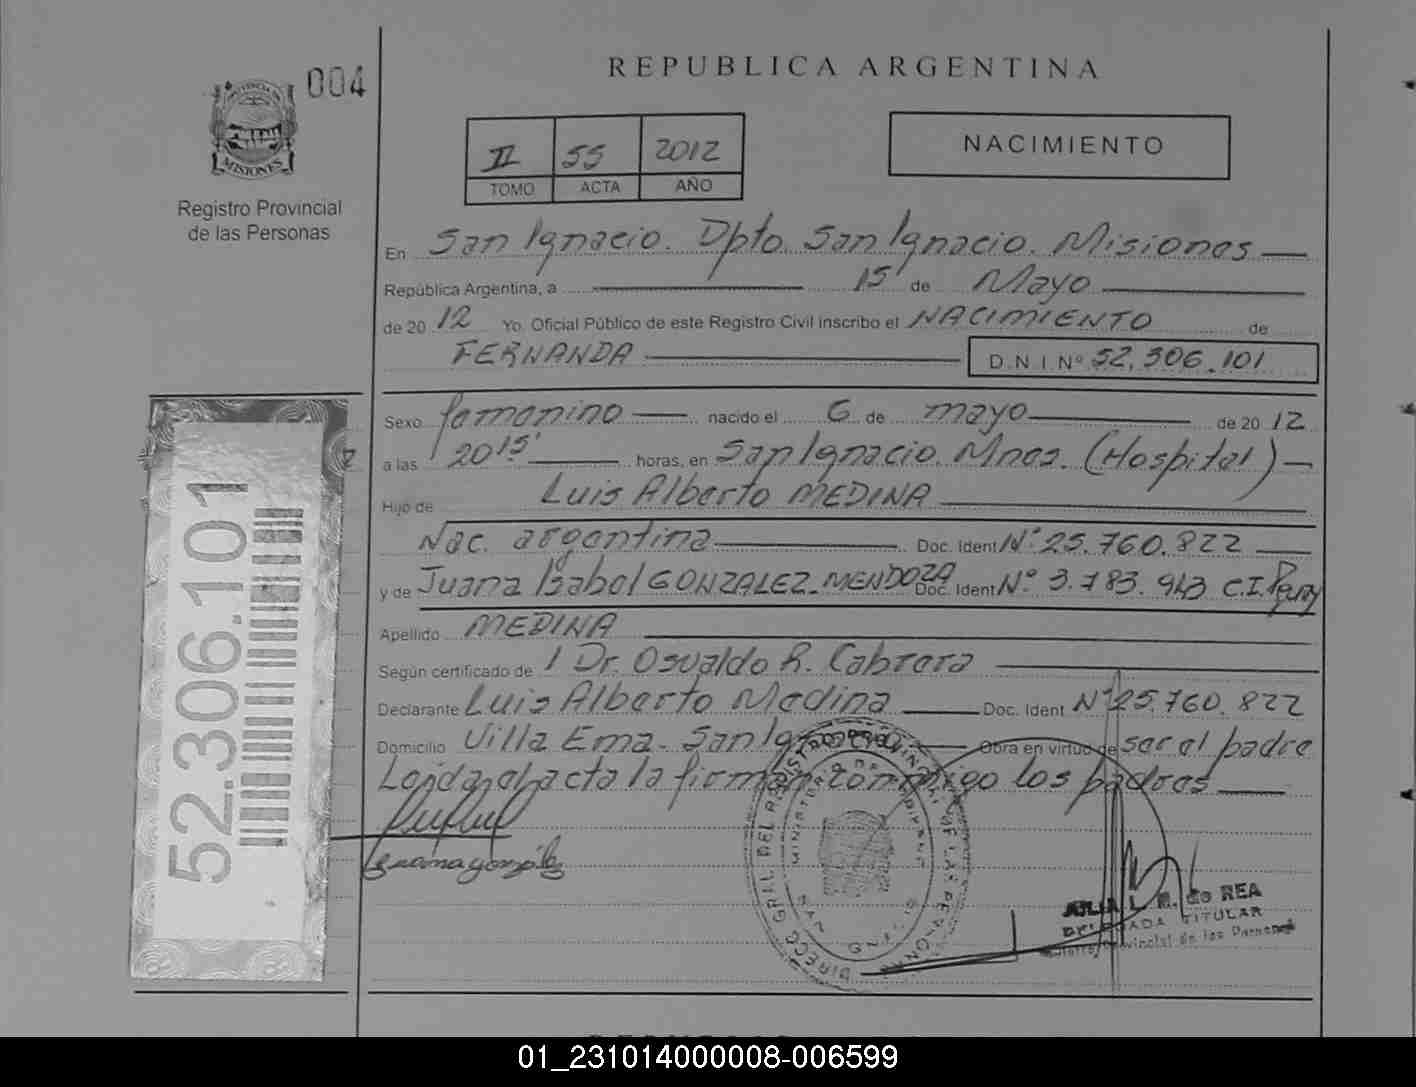 004
REPUBLICA ARGENTINA
MISIONES
Registro Provincial
de las Personas
II 55 2012
TOMO ACTA AÑO
NACIMIENTO
En San Ignacio. Dpto. San Ignacio. Misiones
República Argentina, a 15 de Mayo
de 20 12 Yo, Oficial Público de este Registro Civil inscribo el NACIMIENTO de
FERNANDA D.N.I. Nº 52.306.101
Sexo femenino nacido el 6 de mayo de 20 12
a las 20 15' horas, en San Ignacio. Mnes. (Hospital)
Hijo de Luis Alberto MEDINA
Nac. argentina Doc. Ident Nº 25.760.822
y de Juana Isabel GONZALEZ MENDOZA Doc. Ident Nº 3.783.943 C.I. Pguay
Apellido MEDINA
Según certificado de 1 Dr. Osvaldo R. Cabrera
Declarante Luis Alberto Medina Doc. Ident Nº 25.760.822
Domicilio Villa Ema - San Ignacio Obra en virtud de ser el padre
Leida el acta la firman conmigo los padres
Juana González
JULIA L. M. de REA
DELEGADA TITULAR
Registro Provincial de las Personas
DIRECC. GRAL. DEL REGISTRO PROVINCIAL DE LAS PERSONAS
MINISTERIO DE GOBIERNO
SAN IGNACIO
52.306.101
01_231014000008-006599